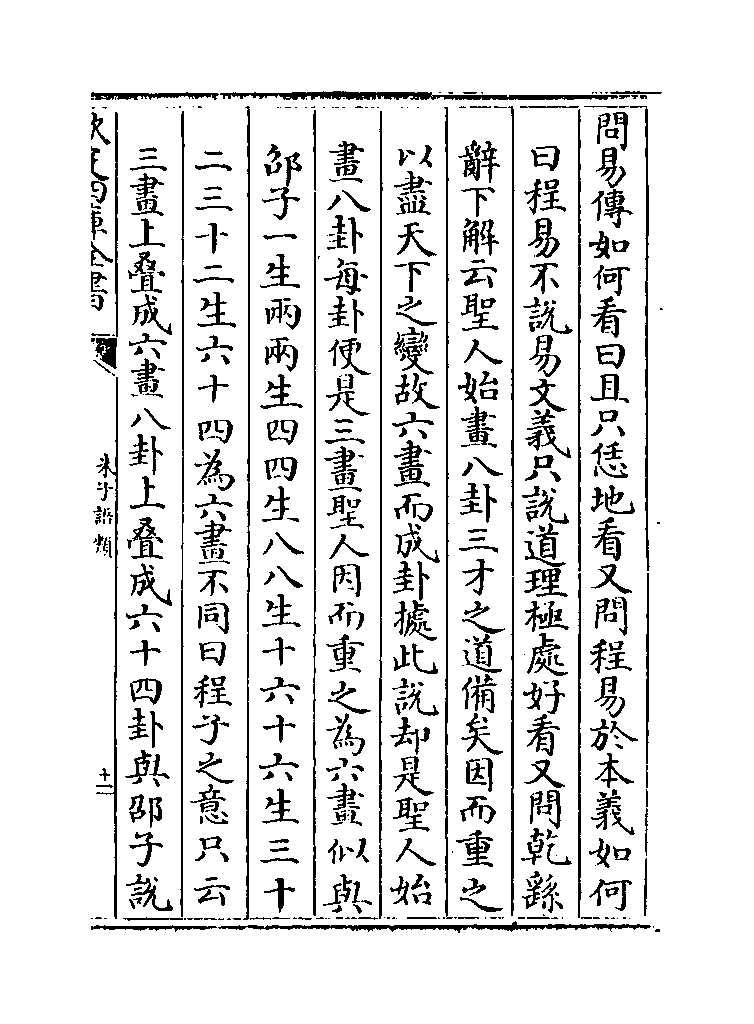 問易傳如何看曰且只恁地看又問程易於本義如何
曰程易不說易文義只說道理極處好看又問乾繇
辭下解云聖人始畫八卦三才之道備矣因而重之
以盡天下之變故六畫而成卦據此說却是聖人始
畫八卦每卦便是三畫聖人因而重之為六畫似與
邵子一生兩兩生四四生八八生十六十六生三十
二三十二生六十四為六畫不同曰程子之意只云
三畫上疊成六畫八卦上疊成六十四卦與邵子說
欽定四庫全書
朱子語類
十二